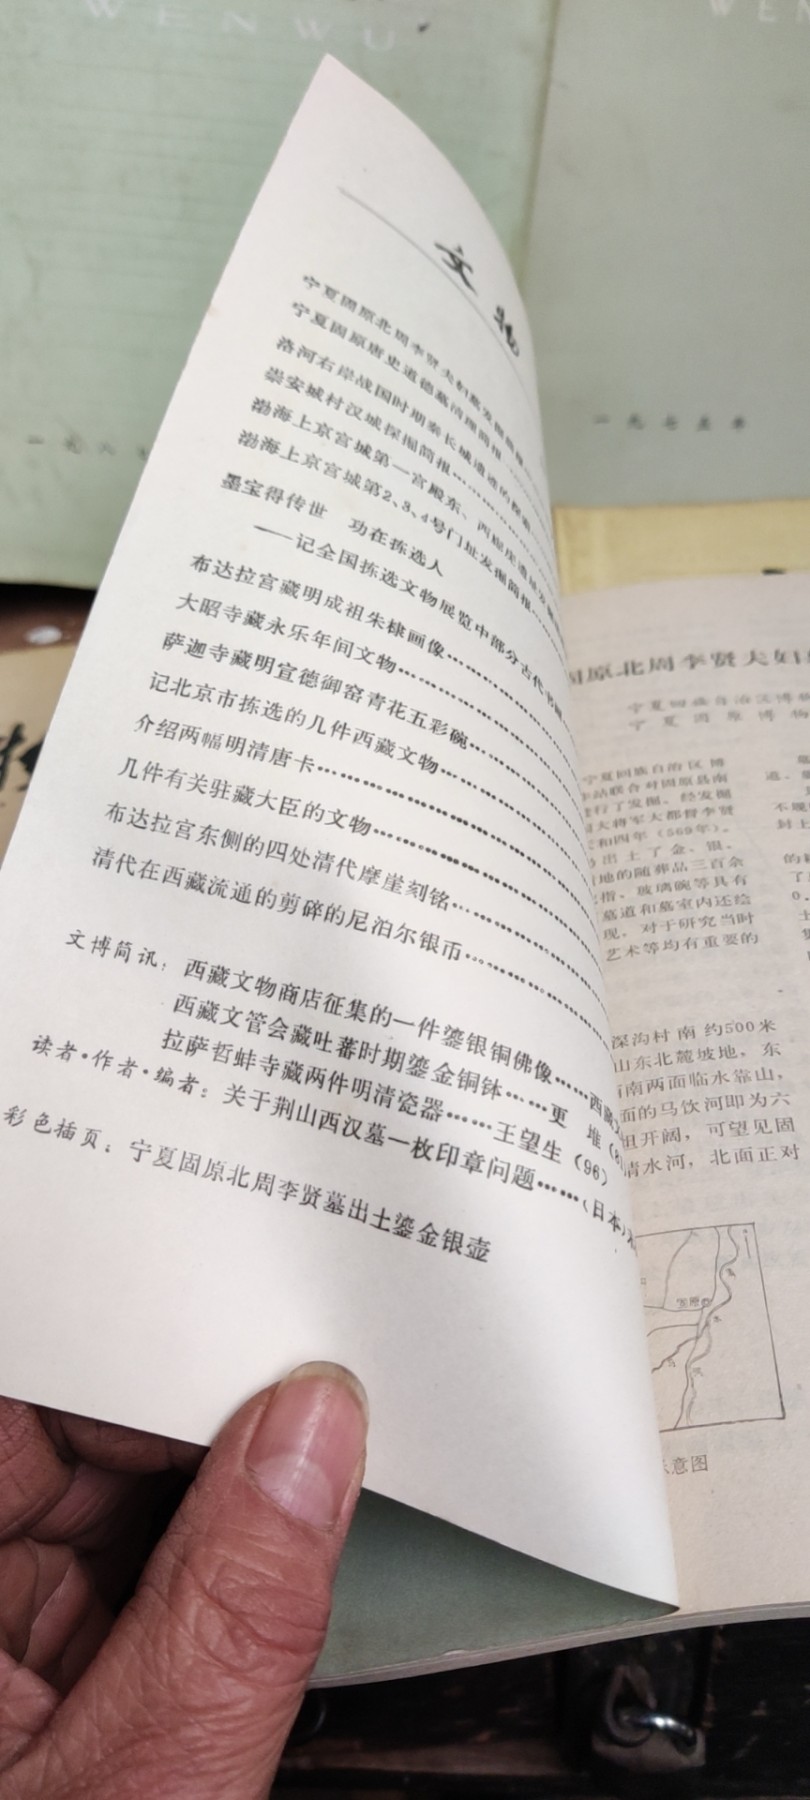 WENWU
WEN
一九七五年
文物
宁夏固原北周李贤夫妇墓发掘简报
宁夏固原唐史道德墓清理简报
洛河右岸战国时期秦长城遗迹的探索
崇安城村汉城探掘简报
渤海上京宫城第一宫殿东、西廊庑遗址发掘
渤海上京宫城第2、3、4号门址发掘简报
墨宝得传世 功在拣选人
——记全国拣选文物展览中部分古代书画
布达拉宫藏明成祖朱棣画像
大昭寺藏永乐年间文物
萨迦寺藏明宣德御窑青花五彩碗
记北京市拣选的几件西藏文物
介绍两幅明清唐卡
几件有关驻藏大臣的文物
布达拉宫东侧的四处清代摩崖刻铭
清代在西藏流通的剪碎的尼泊尔银币
文博简讯：西藏文物商店征集的一件鎏银铜佛像……西藏
西藏文管会藏吐蕃时期鎏金铜钵……更 堆
拉萨哲蚌寺藏两件明清瓷器……王望生（96）
读者·作者·编者：关于荆山西汉墓一枚印章问题……（日本）
彩色插页：宁夏固原北周李贤墓出土鎏金银壶
固原北周李贤夫妇
宁夏回族自治区博物
宁夏固原博物
宁夏回族自治区博
作站联合对固原县南
进行了发掘。经发掘
国大将军大都督李贤
和四年（569年）。
出土了金、银、
地的随葬品三百余
指、玻璃碗等具有
墓道和墓室内还绘
现，对于研究当时
艺术等均有重要的
深沟村南约500米
山东北麓坡地，东
南两面临水靠山，
面的马饮河即为六
坦开阔，可望见固
清水河，北面正对
固原
意图